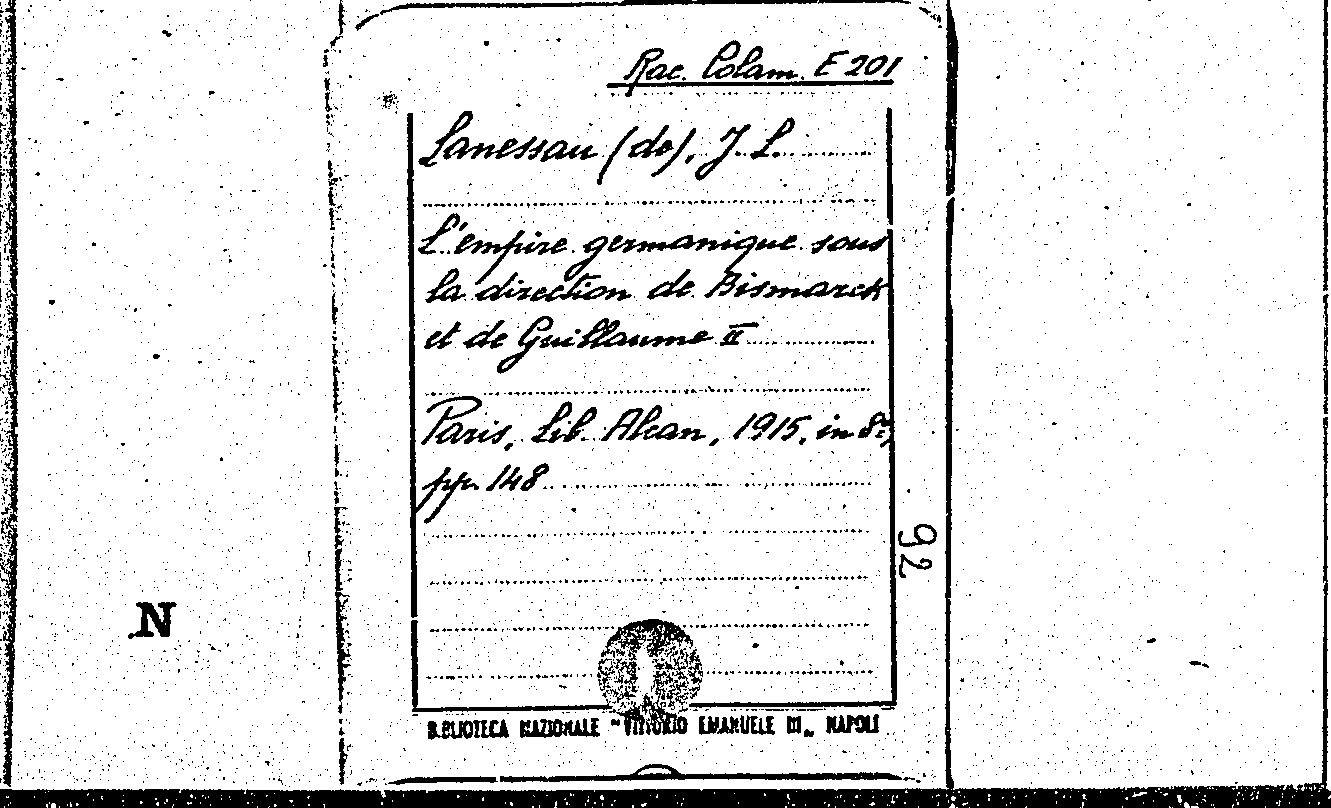 Rac. Colam. E 201
Lanessau (de), J. L.
L'empire germanique sous
la direction de Bismarck
et de Guillaume II
Paris, Lib. Alcan, 1915, in 8º,
pp. 148
92
N
BIBLIOTECA NAZIONALE "VITTORIO EMANUELE III" NAPOLI